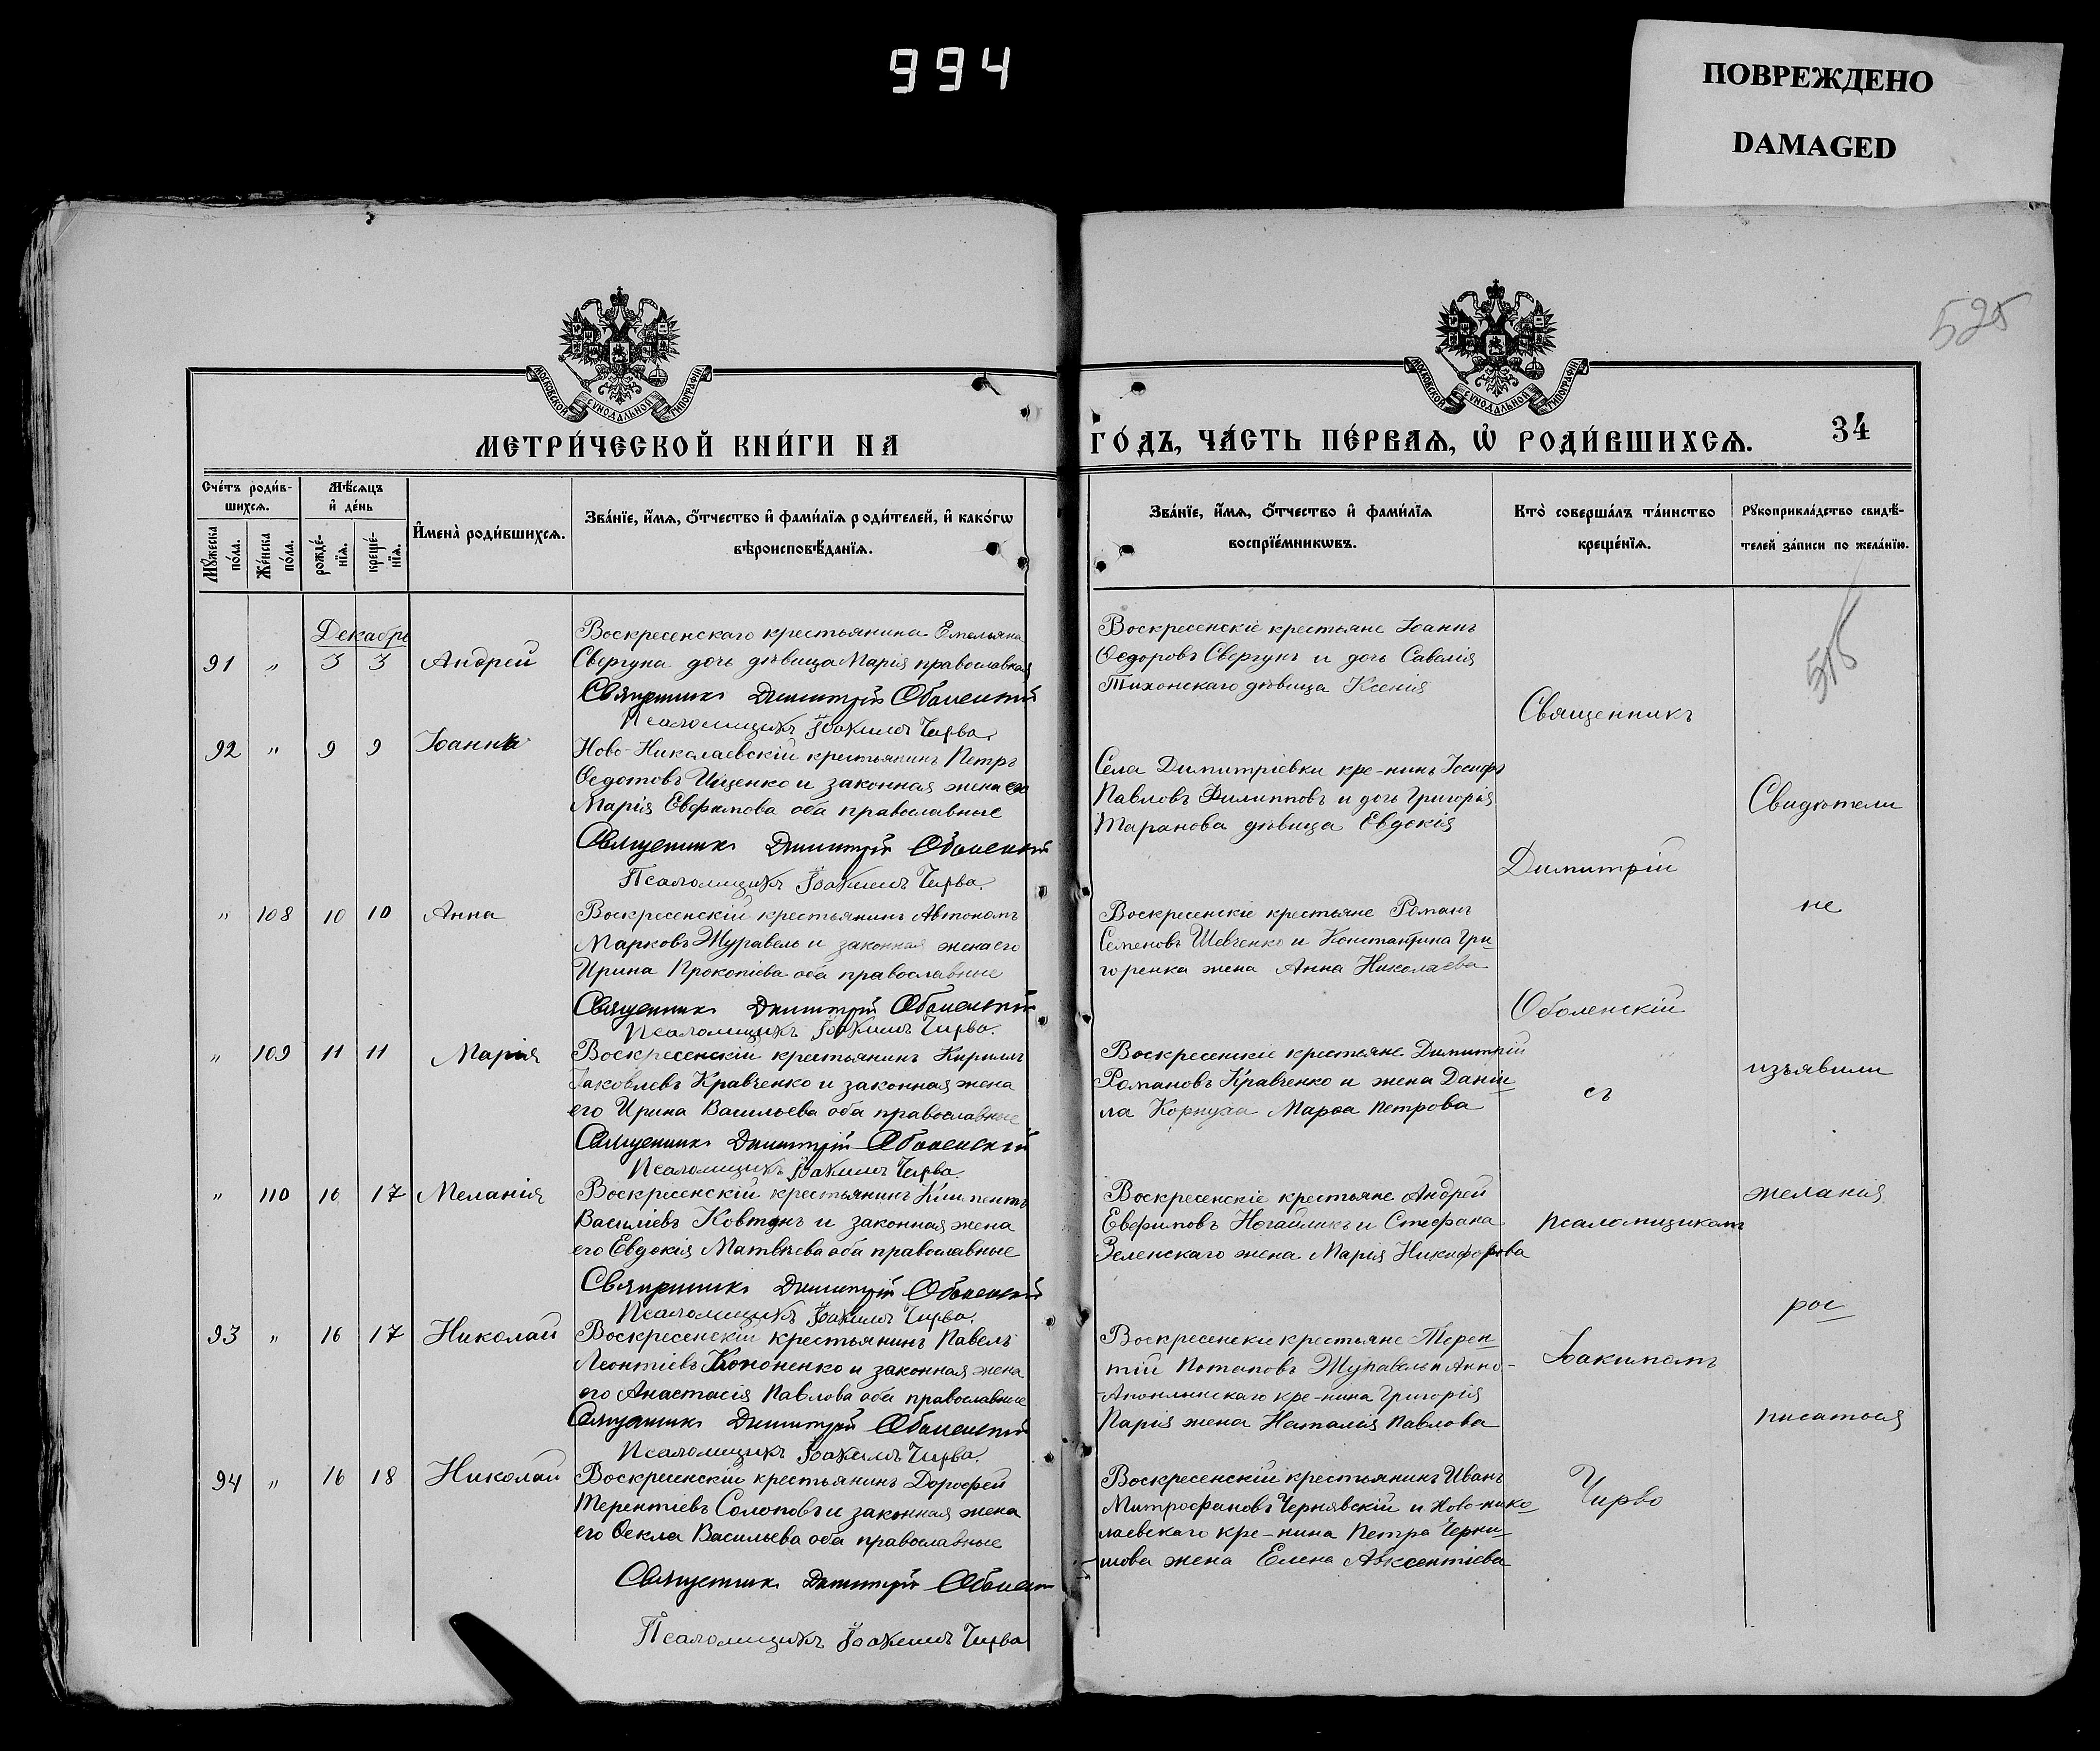 994
ПОВРЕЖДЕНО
DAMAGED
525
МОСКОВСКОЙ СѴНОДАЛЬНОЙ ТИПОГРАФІИ
МОСКОВСКОЙ СѴНОДАЛЬНОЙ ТИПОГРАФІИ
МЕТРИ́ЧЕСКОЙ КНИ́ГИ НА
ГО́ДЪ, ЧА́СТЬ ПЕ́РВАѦ, Ѡ҆ РОДИ́ВШИХСѦ.
34
Сче́тъ роди́в-
шихсѧ.
Мꙋ́жеска по́ла.
Же́нска по́ла.
Мѣ́сѧцъ
и҆ де́нь
рожде́-
нїѧ.
креще́-
нїѧ.
И҆мена̀ роди́вшихсѧ.
Зва́нїе, и҆́мѧ, ѻ҆́тчество и҆ фами́лїѧ роди́телей, и҆ како́гѡ
вѣроисповѣ́данїѧ.
Зва́нїе, и҆́мѧ, ѻ҆́тчество и҆ фами́лїѧ
воспрїе́мникѡвъ.
Кто̀ соверша́лъ та́инство
креще́нїѧ.
Рꙋкоприкла́дство свидѣ́-
телей за́писи по жела́нїю.
Декабрь
91 " 3 3 Андрей
Воскресенскаго крестьянина Емельяна
Свергуна дочь дѣвица Марія православная
Священникъ Димитрій Оболенскій
Псаломщикъ Іоакимъ Чирва.
Воскресенскіе крестьяне Іоаннъ
Ѳедоровъ Свергунъ и дочь Савелія
Тихонскаго дѣвица Ксенія
92 " 9 9 Іоаннъ
Ново-Николаевскій крестьянинъ Петръ
Ѳедотовъ Ищенко и законная жена его
Марія Евфимова оба православные
Священникъ Димитрій Оболенскій
Псаломщикъ Іоакимъ Чирва.
Села Димитріевки кре-нинъ Іосифъ
Павловъ Филипповъ и дочь Григорія
Таранова дѣвица Евдокія
" 108 10 10 Анна
Воскресенскій крестьянинъ Автономъ
Марковъ Журавель и законная жена его
Ирина Прокопіева оба православные
Священникъ Димитрій Оболенскій
Псаломщикъ Іоакимъ Чирва.
Воскресенскіе крестьяне Романъ
Семеновъ Шевченко и Константина Гри-
горенка жена Анна Николаева
" 109 11 11 Марія
Воскресенскій крестьянинъ Кириллъ
Іаковлевъ Кравченко и законная жена
его Ирина Васильева оба православные
Священникъ Димитрій Оболенскій
Псаломщикъ Іоакимъ Чирва.
Воскресенскіе крестьяне Димитрій
Романовъ Кравченко и жена Даніи-
ла Корнуха Марѳа Петрова
" 110 16 17 Меланія
Воскресенскій крестьянинъ
Василіевъ Ковтунъ и законная жена
его Евдокія Матвѣева оба православные
Священникъ Димитрій Оболенскій
Псаломщикъ Іоакимъ Чирва.
Воскресенскіе крестьяне Андрей
Евфимовъ Ногайликъ и Стефана
Зеленскаго жена Марія Никифорова
93 " 16 17 Николай
Воскресенскій крестьянинъ Павелъ
Леонтіевъ Кононенко и законная жена
его Анастасія Павлова оба православные
Священникъ Димитрій Оболенскій
Псаломщикъ Іоакимъ Чирва.
Воскресенскіе крестьяне Терен-
тій Потаповъ Журавель и Анно-
кре-нина Григорія
Парія жена Наталія Павлова
94 " 16 18 Николай
Воскресенскій крестьянинъ Дорофей
Терентіевъ Солоповъ и законная жена
его Ѳекла Васильева оба православные
Священникъ Димитрій Оболен
Псаломщикъ Іоакимъ Чирва
Воскресенскій крестьянинъ Иванъ
Митрофановъ Чернявскій и Ново-нико-
лаевскаго кре-нина Петра Черни-
шова жена Елена Авксентіева
Священникъ
Димитрій
Оболенскій
съ
псаломщикомъ
Іоакимомъ
Чирво
Свидѣтели
не
изъявили
желанія
рос-
писаться